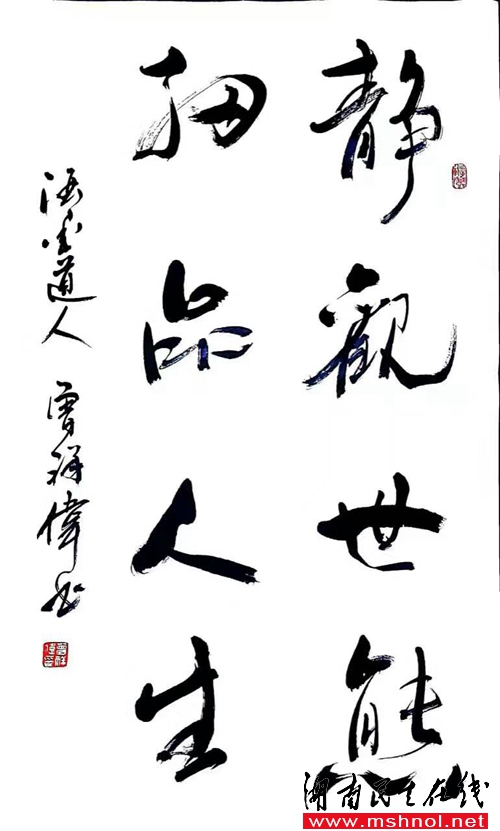 靜觀世態
細品人生
道人 曾祥偉書
湖南民生在线
www.mshnol.net